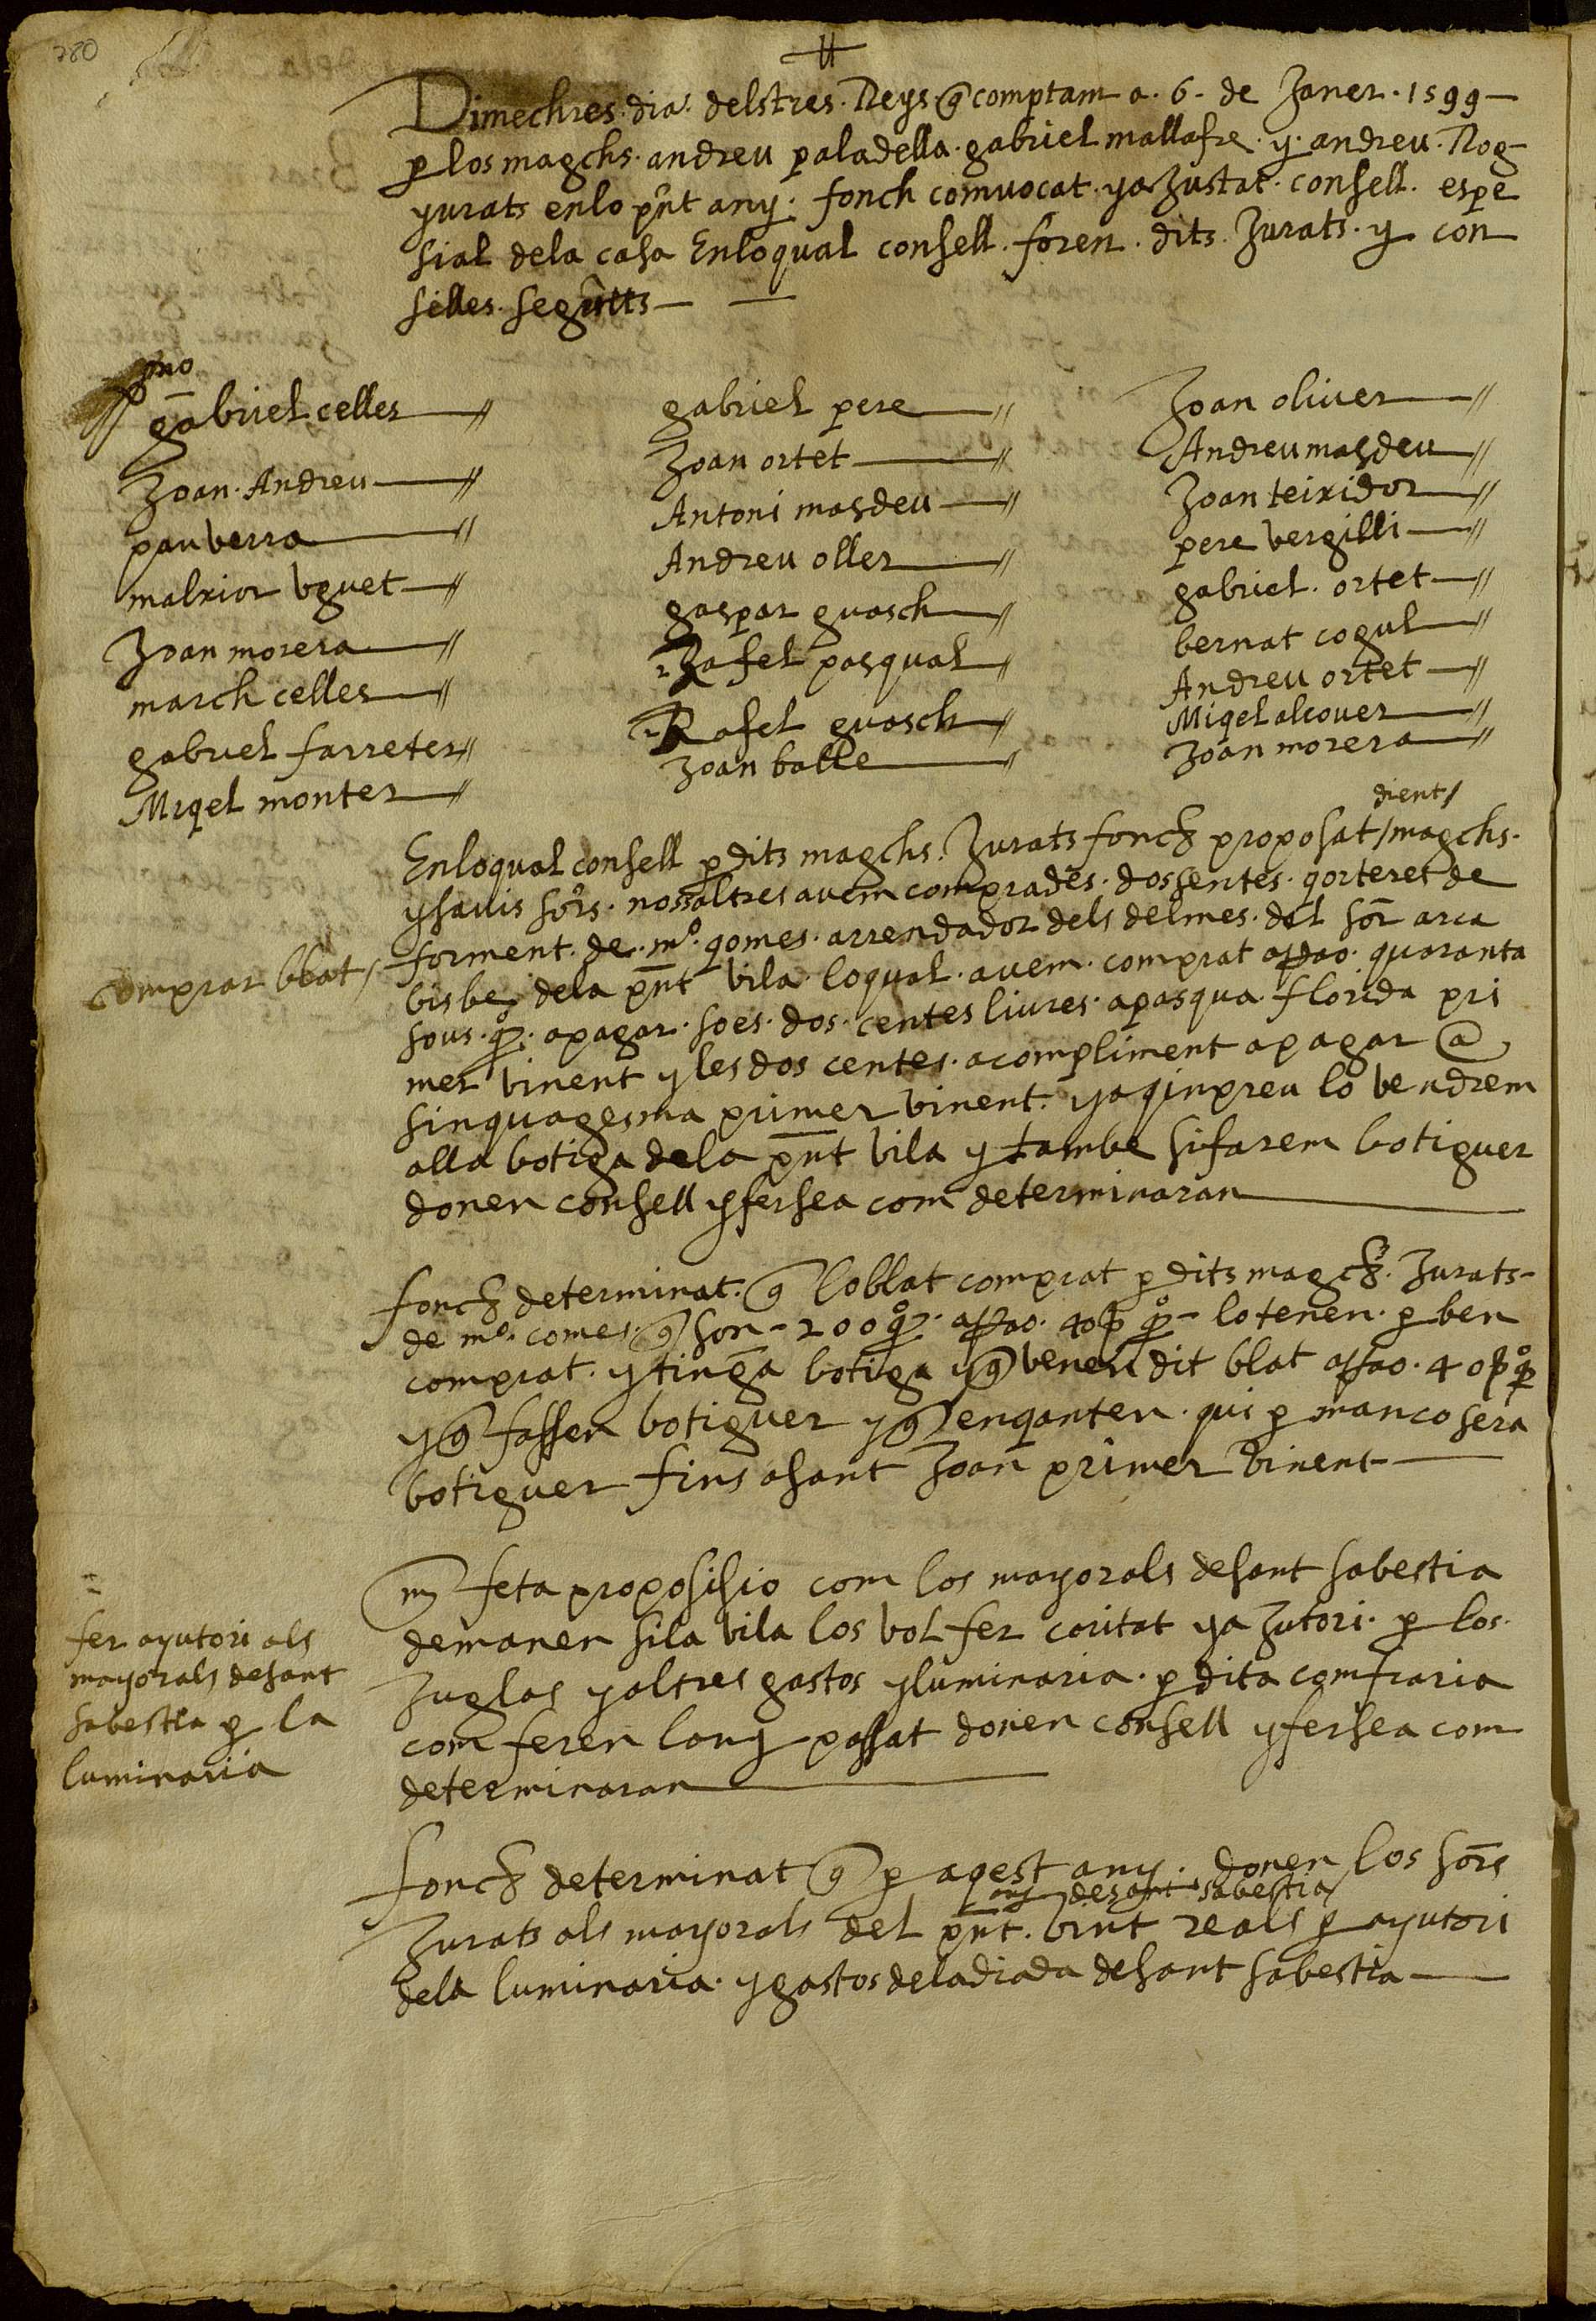 780
Dimechres dia delstres Reys q̃ comptam a. 6. de Janer. 1599
p los magchs. andreu paladella. gabriel mallafre. y. andreu. Rog
yurats enlo pñt any. fonch comvocat. yaJustat. consell. espe
sial dela casa Enloqual consell. foren. dits. Jurats. y con
selles. segûtts
pmo
gabriel celles
Joan. Andreu
pau verra
malxior vguet
Joan morera
march celles
gabriel farreter
Miqel monter
gabriel pere
Joan ortet
Antoni masdeu
Andreu oller
gaspar guasch
Rafel pasqual
Rafel guasch
Joan balle
Joan oliver
Andreu masdeu
Joan teixidor
pere vergilli
gabriel. ortet
bernat cogul
Andreu ortet
Miqel alcover
Joan morera
dient/
Enloqual consell p dits magchs. Jurats fonch proposat/magchs.
ysavis sōrs. nosaltres avem comprades. dossentes. qorteres de
comprar bbat/
forment. de. mº. gomes. arrendador dels delmes. del sōr arca
bisbe, dela pñt vila. loqual. avem. comprat a rao. quaranta
sous. qº. apagar. soes. dos. centes liures. apasqua. florida pri
mer vinent y les dos centes. acompliment apagar @
sinquagesma primer vinent. yaqinpreu lo vendrem
alla botiga dela pñt vila y tambe sifarem botiguer
donen consell yfersea com determinaran
fonch determinat. q̃ loblat comprat p dits magch. Jurats
de mº. comes. q̃ son 200 qº. a rao. 40 ẞ qº lotenen. p ben
comprat. y tinga botiga y q̃ venen dit blat a rao. 40 ẞ qº
y q̃ fassen botiguer y q̃ enqanten. qui p manco sera
botiguer fins asant Joan primer vinent
fer ayutori als
mayorals desant
sabestia p la
luminaria
my feta proposisio com los mayorals desant sabestia
demanen sila vila los vol fer caritat yaJutori. p los.
Juglas yaltres gastos yluminaria. p dita comfraria
com feren lany passat donen consell yfersea com
determinaran
fonch determinat q̃ p aqest any. donen los sōrs
any desant sabestia
Jurats als mayorals del pñt. vint reals p ayutori
dela luminaria. ygastos deladiada desant sabestia